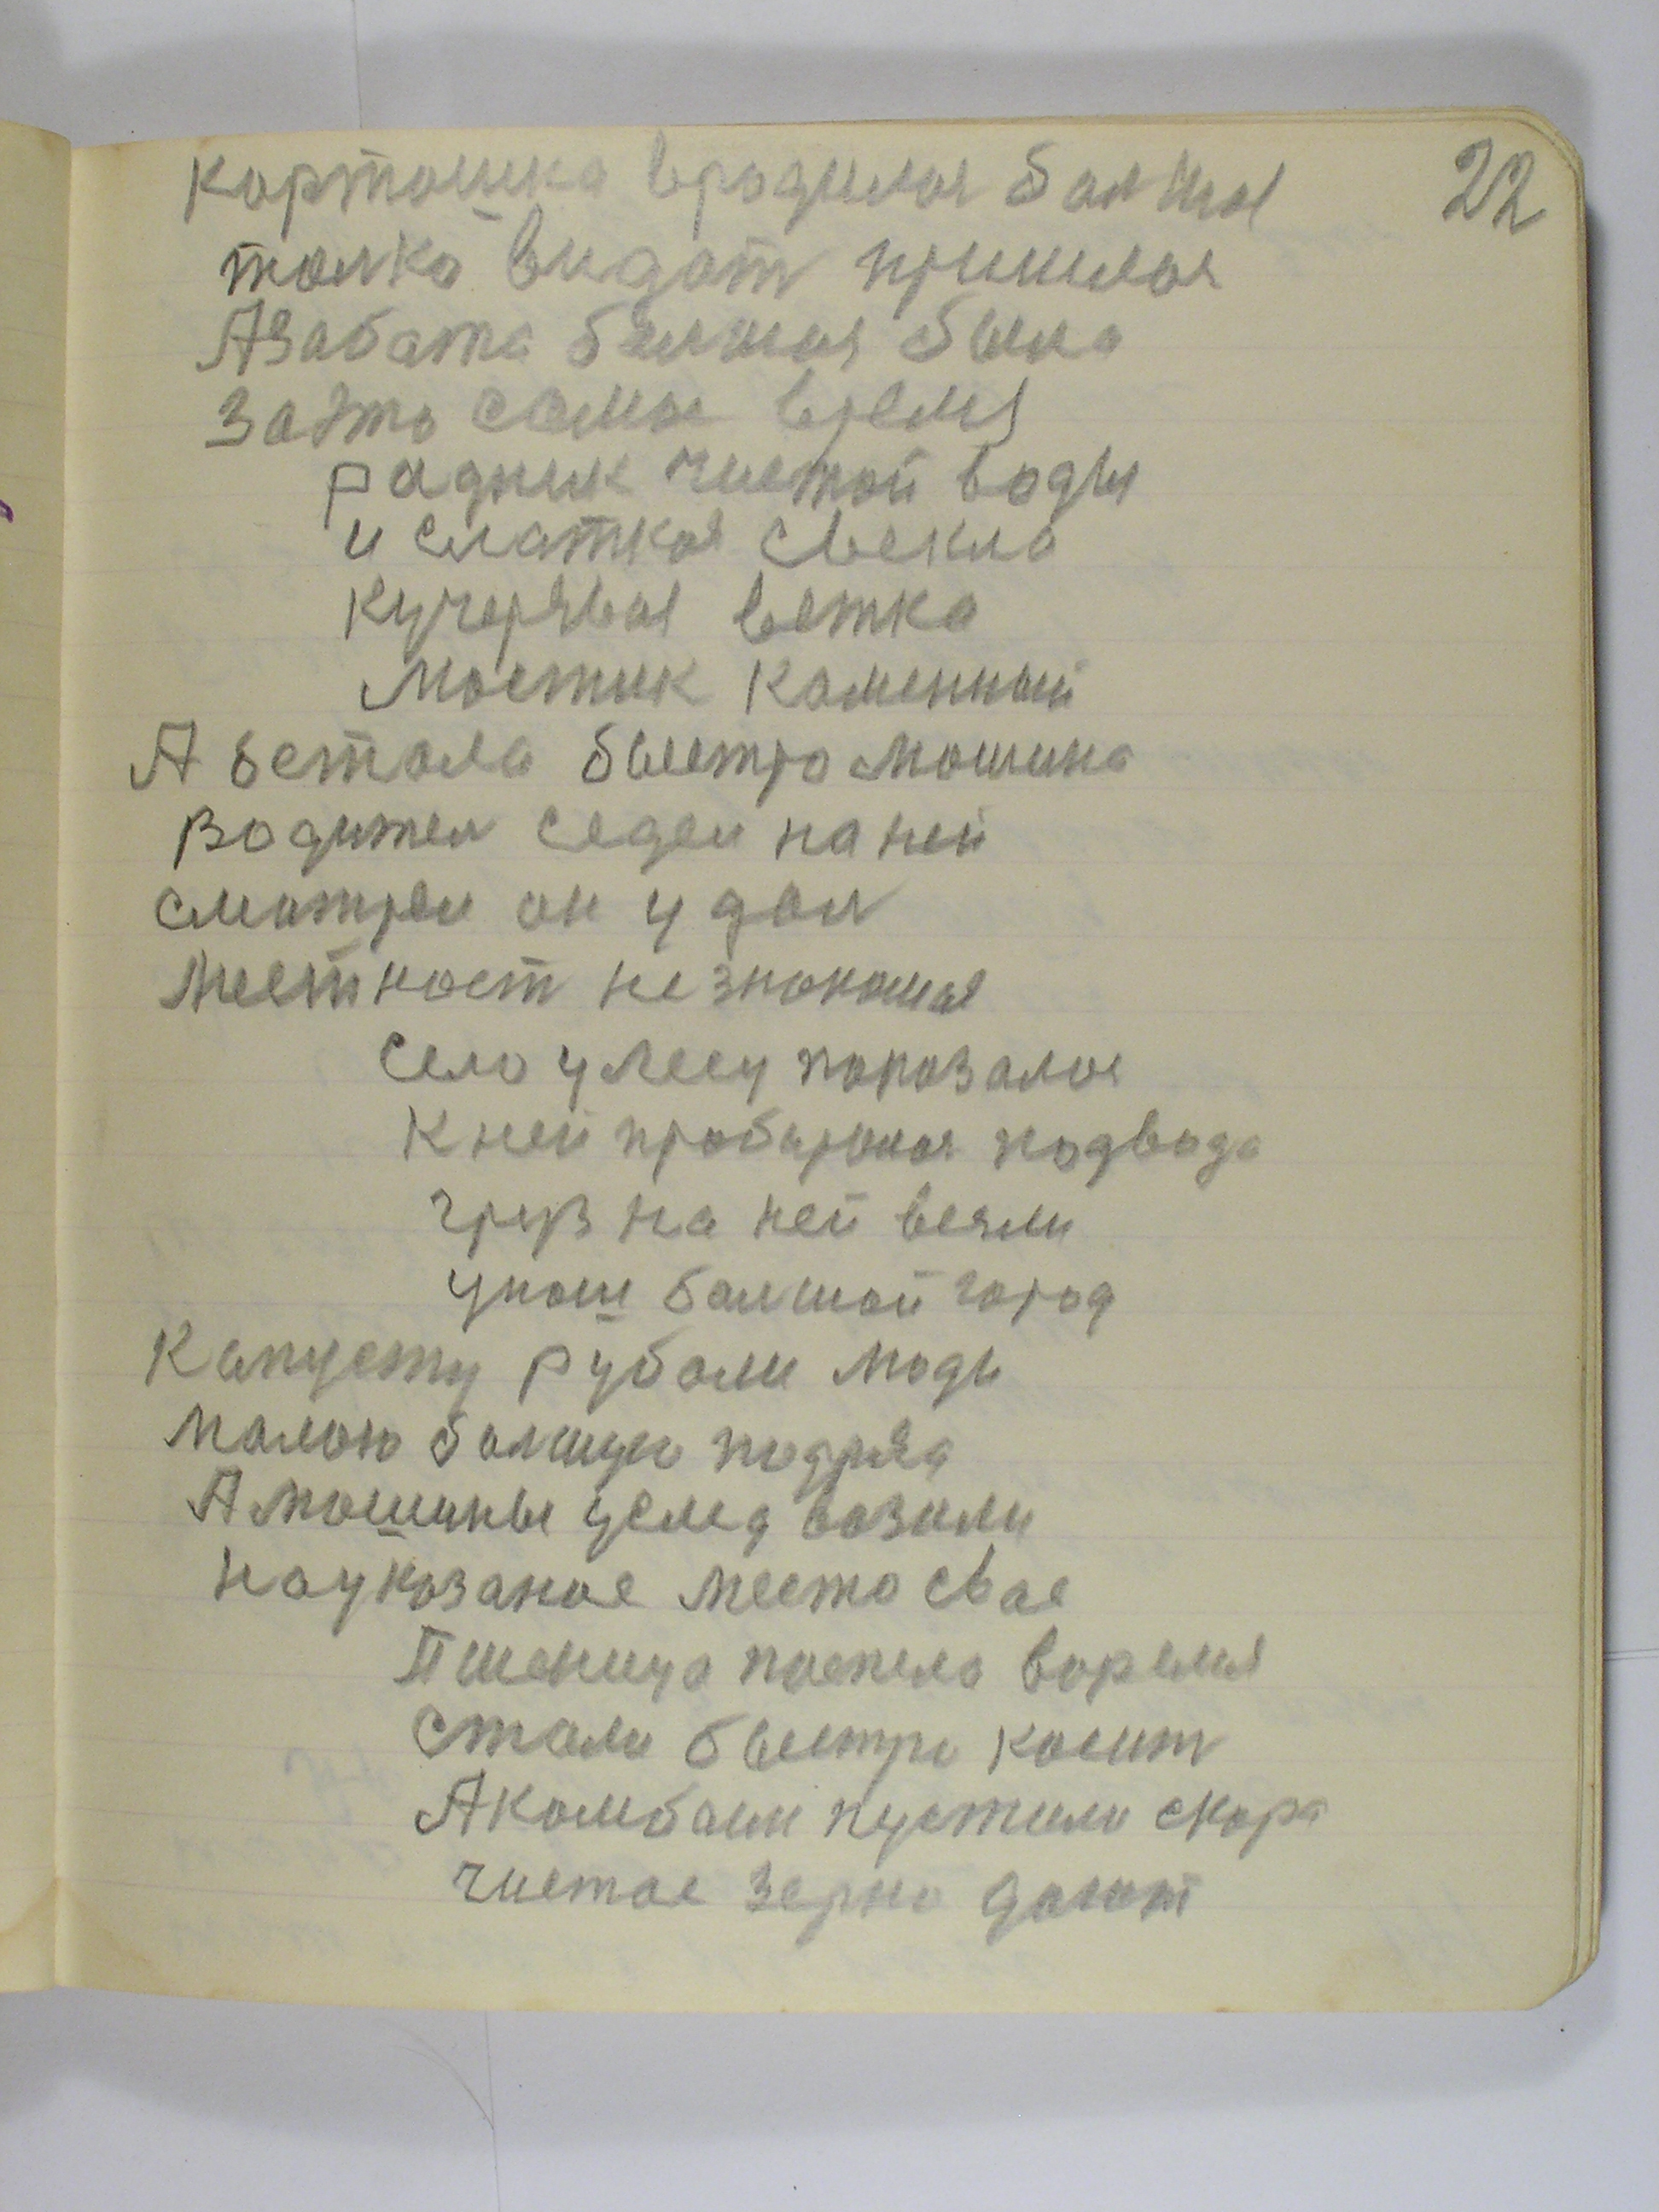 22
Картошка вродилоя балшая
толко видат пришлоя
Азабата балшая была
За это самае время
радник чистой воды
и слаткая свекла
кучерявая ветка
мостик каменный
А встала быстро машина
Водител седел на ней
сматрел он у дал
Местност не знакомая
село у лесу паказалоя
К ней пробаралоя подвода
груз на ней везли
у наш балшой город
Капусту рубали люди
малаю балшую подряд
А машины услед вазили
на указаное место свае
Пшеница паспела время
стали быстро касит
А камбаин пустили скора
чистае зерно дают